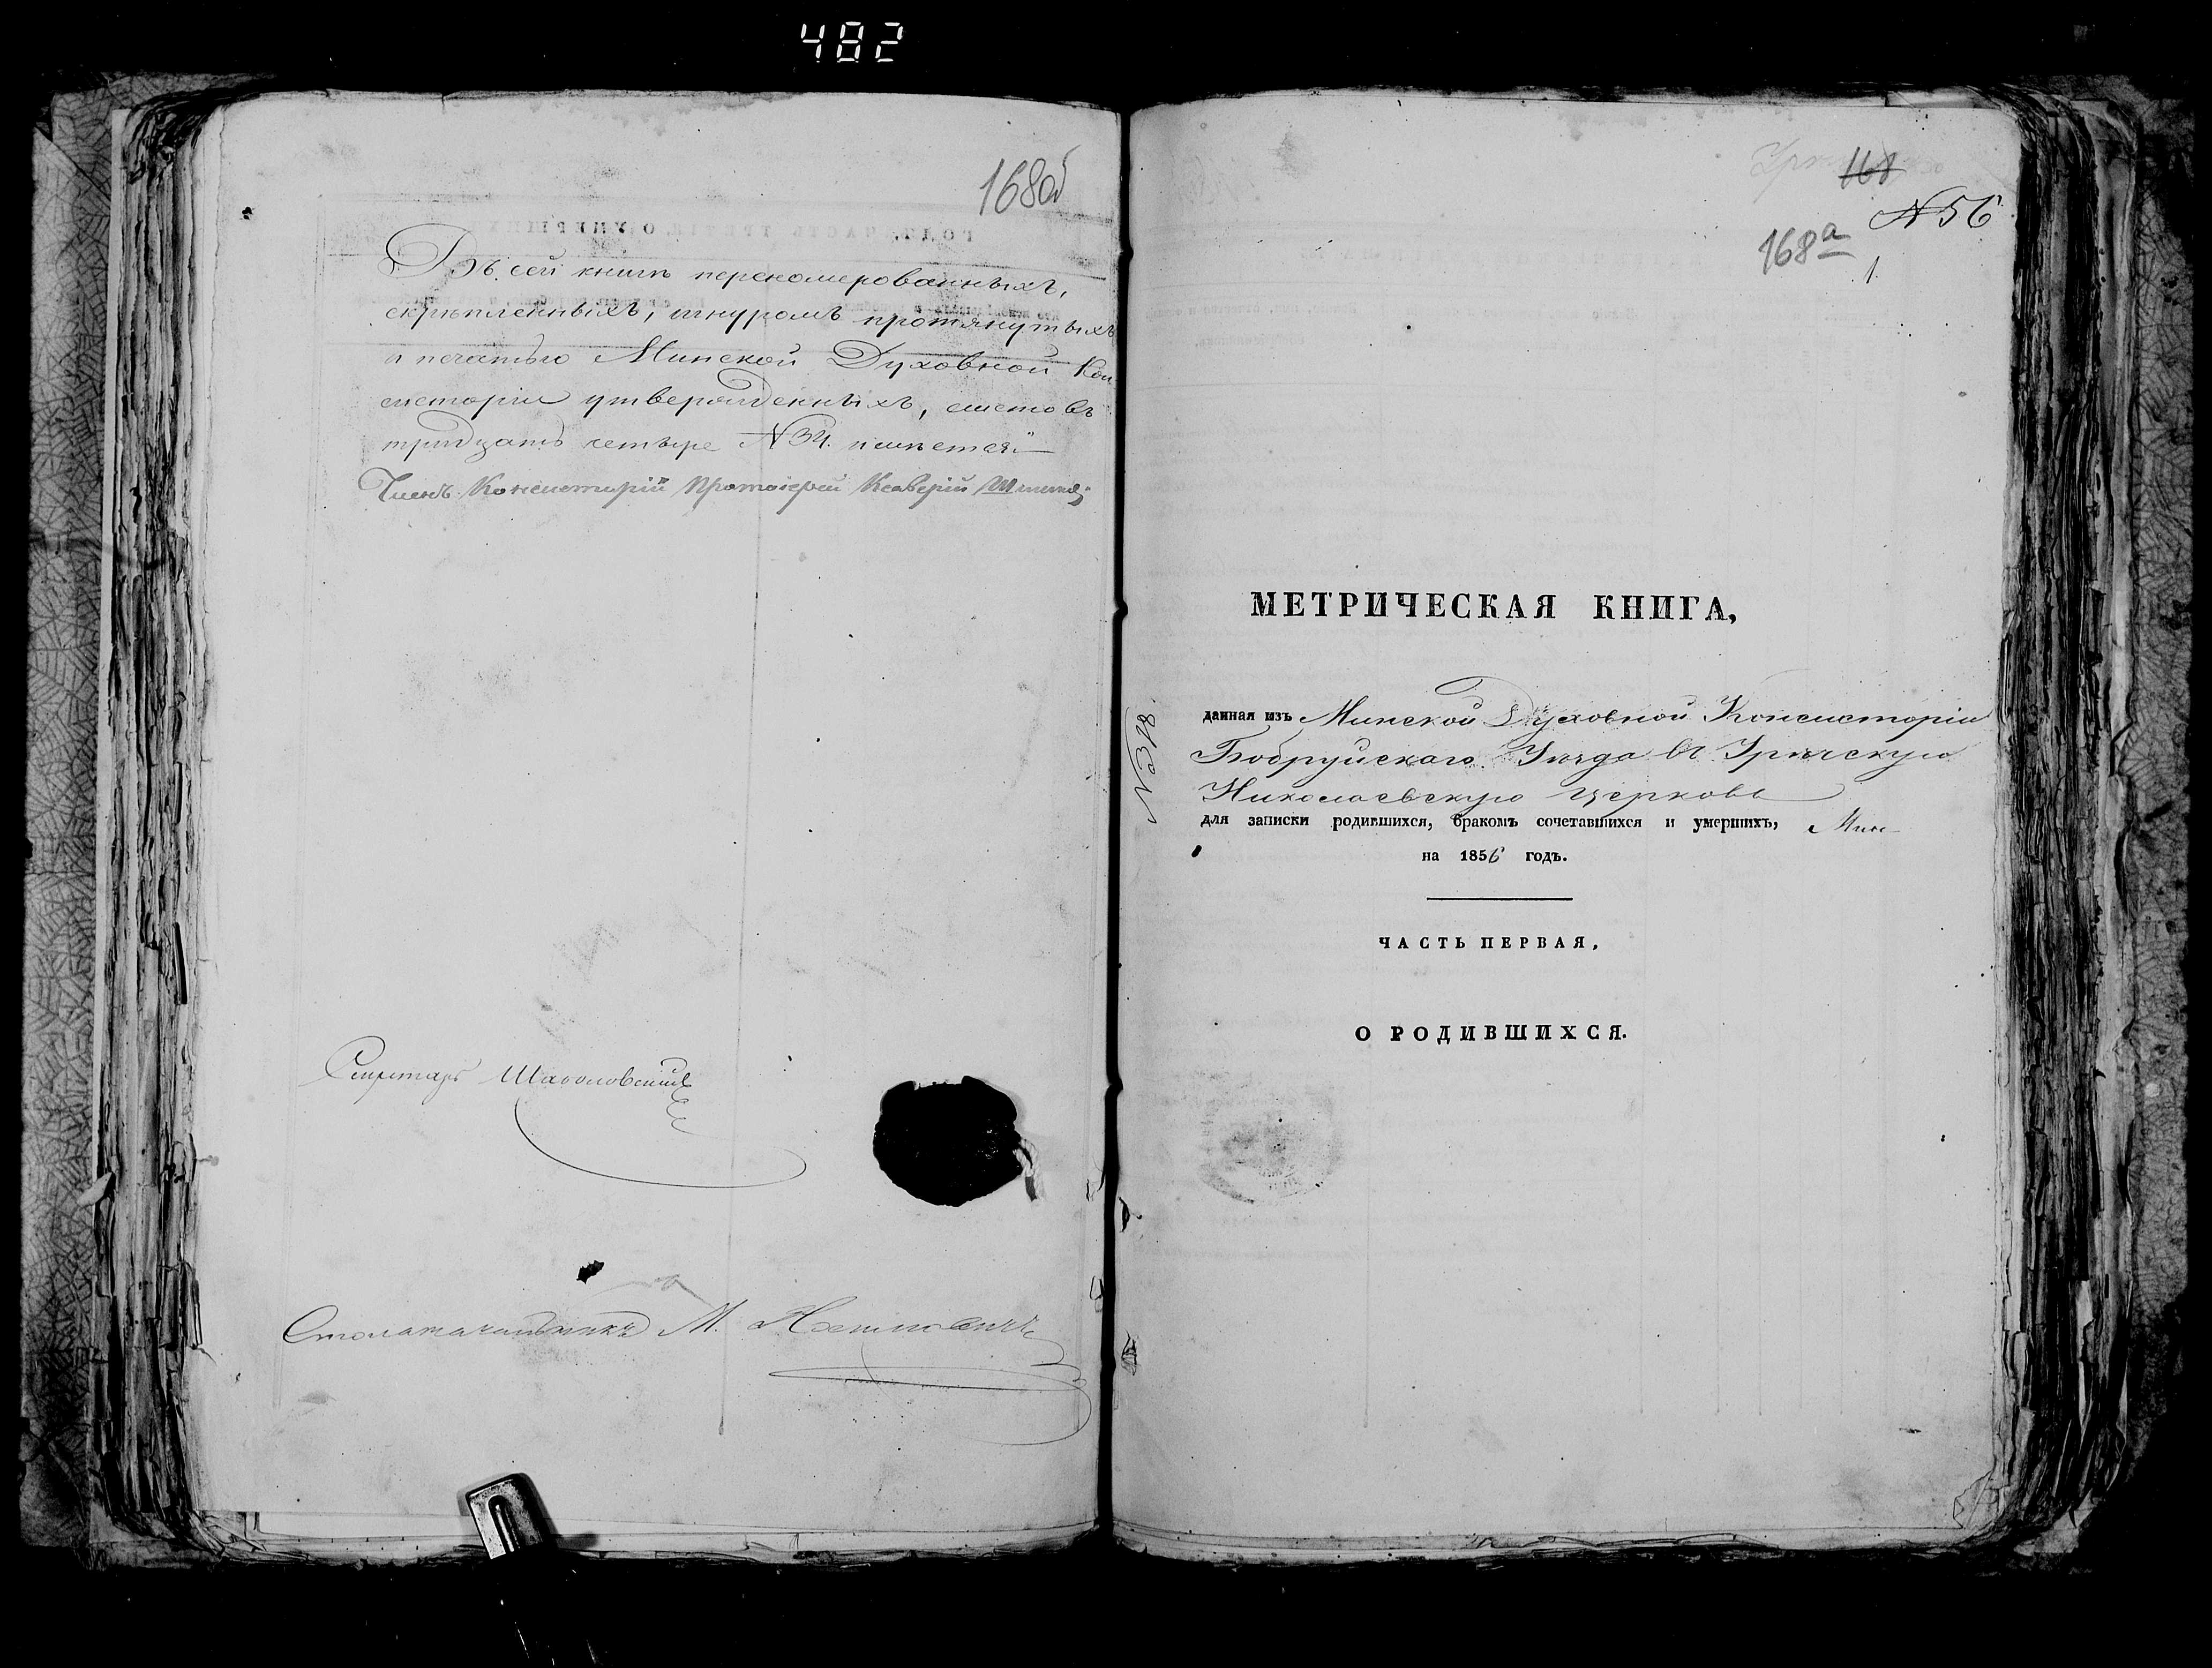 482
168об
Въ сей книгѣ переномерованныхъ,
скрѣпленныхъ, шнуромъ протянутыхъ
и печатью Минской Духовной Кон
систоріи утвержденныхъ, листовъ
тридцать четыре №34. имѣется
Членъ Консисторіи Протоіерей Ксаверій
Секретарь
Столоначальникъ М.
168
№56
168а
1.
МЕТРИЧЕСКАЯ КНИГА,
№318.
данная изъ Минской Духовной Консисторіи
Бобруйскаго Уѣзда въ Урѣчскую
Николаевскую церковь
для записки родившихся, бракомъ сочетавшихся и умершихъ,
на 1856 годъ.
ЧАСТЬ ПЕРВАЯ,
О РОДИВШИХСЯ.